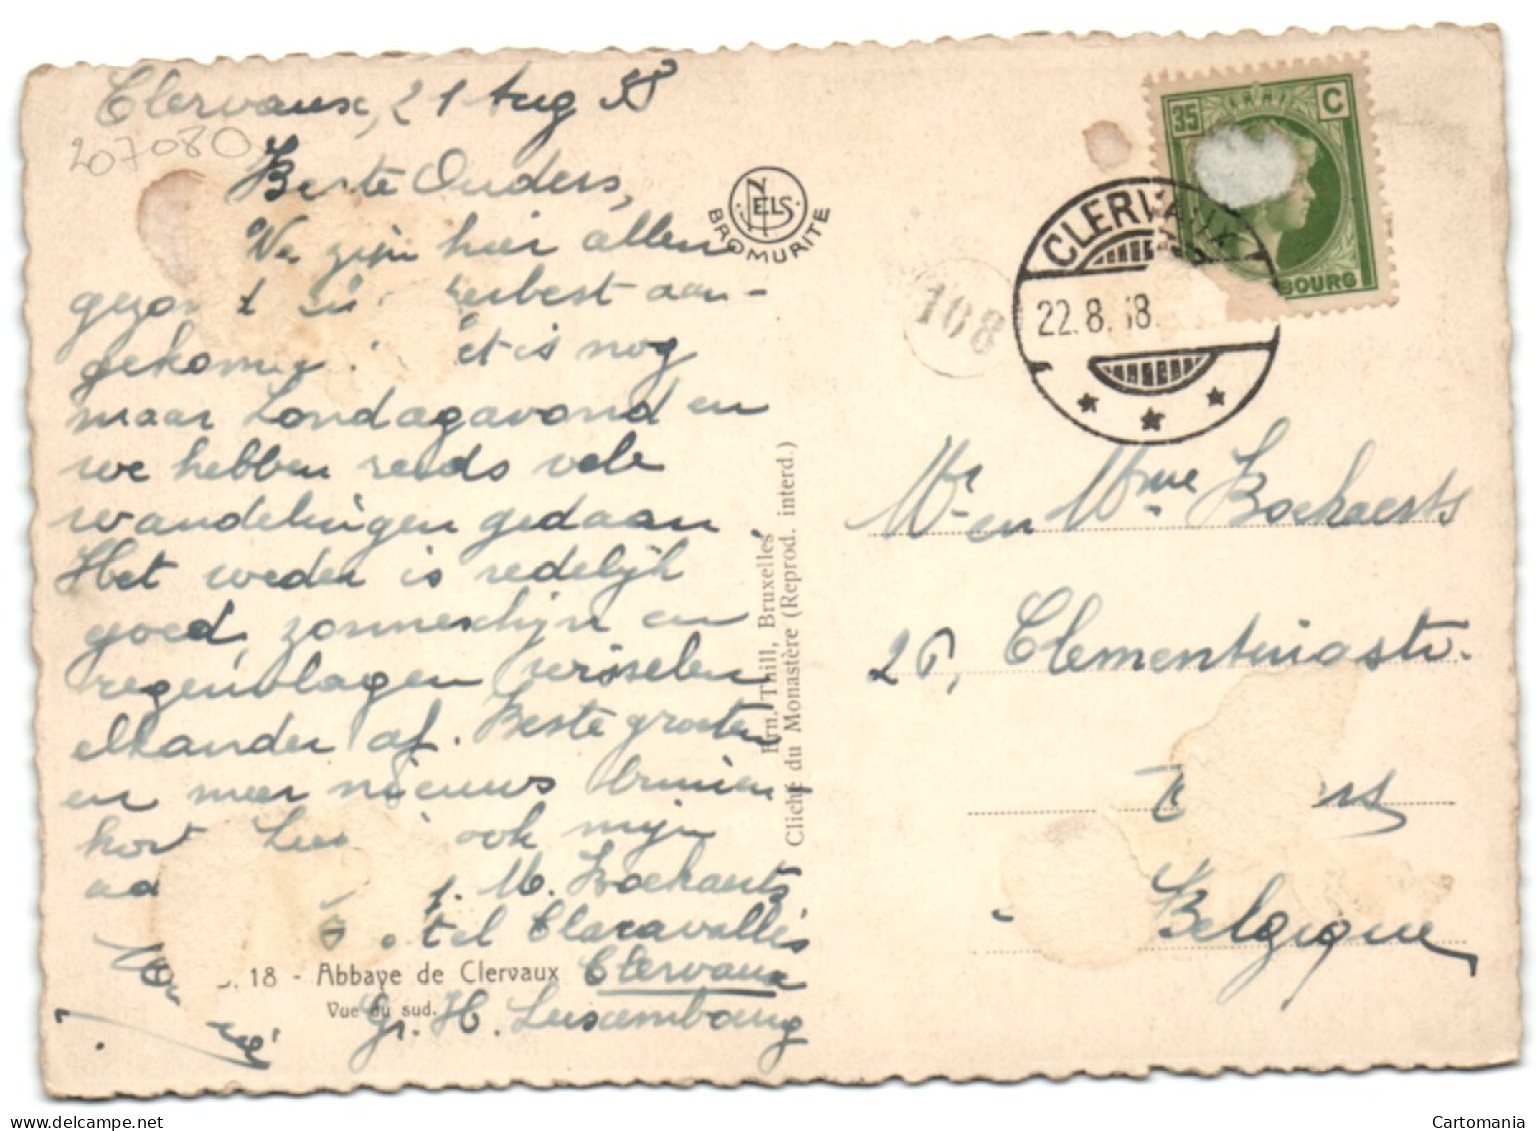 Clervaux, 21 Aug 38
207080
Beste Ouders,
We zijn hier allen
gezo t in aan-
gekomen et is nog
maar Zondagavond en
we hebben reeds vele
wandelingen gedaan
Het weder is redelijk
goed, zonneschijn en
regenvlagen wisselen
elkander af. Beste groeten
en meer nieuws binnen
kort ook mijn
ad
M. Boekaerts
tel Claravallis
Clervaux
Gr. H. Luxembourg
18 - Abbaye de Clervaux
Vue du sud.
NELS
BROMURITE
Ern. Thill, Bruxelles
Cliché du Monastère (Reprod. interd.)
108
CLERVAUX
22.8.38.
35 C
BOURG
Mr en Mme Boekaerts
26, Clementinastr.
rs
Belgique
Cartomania
delcampe.net